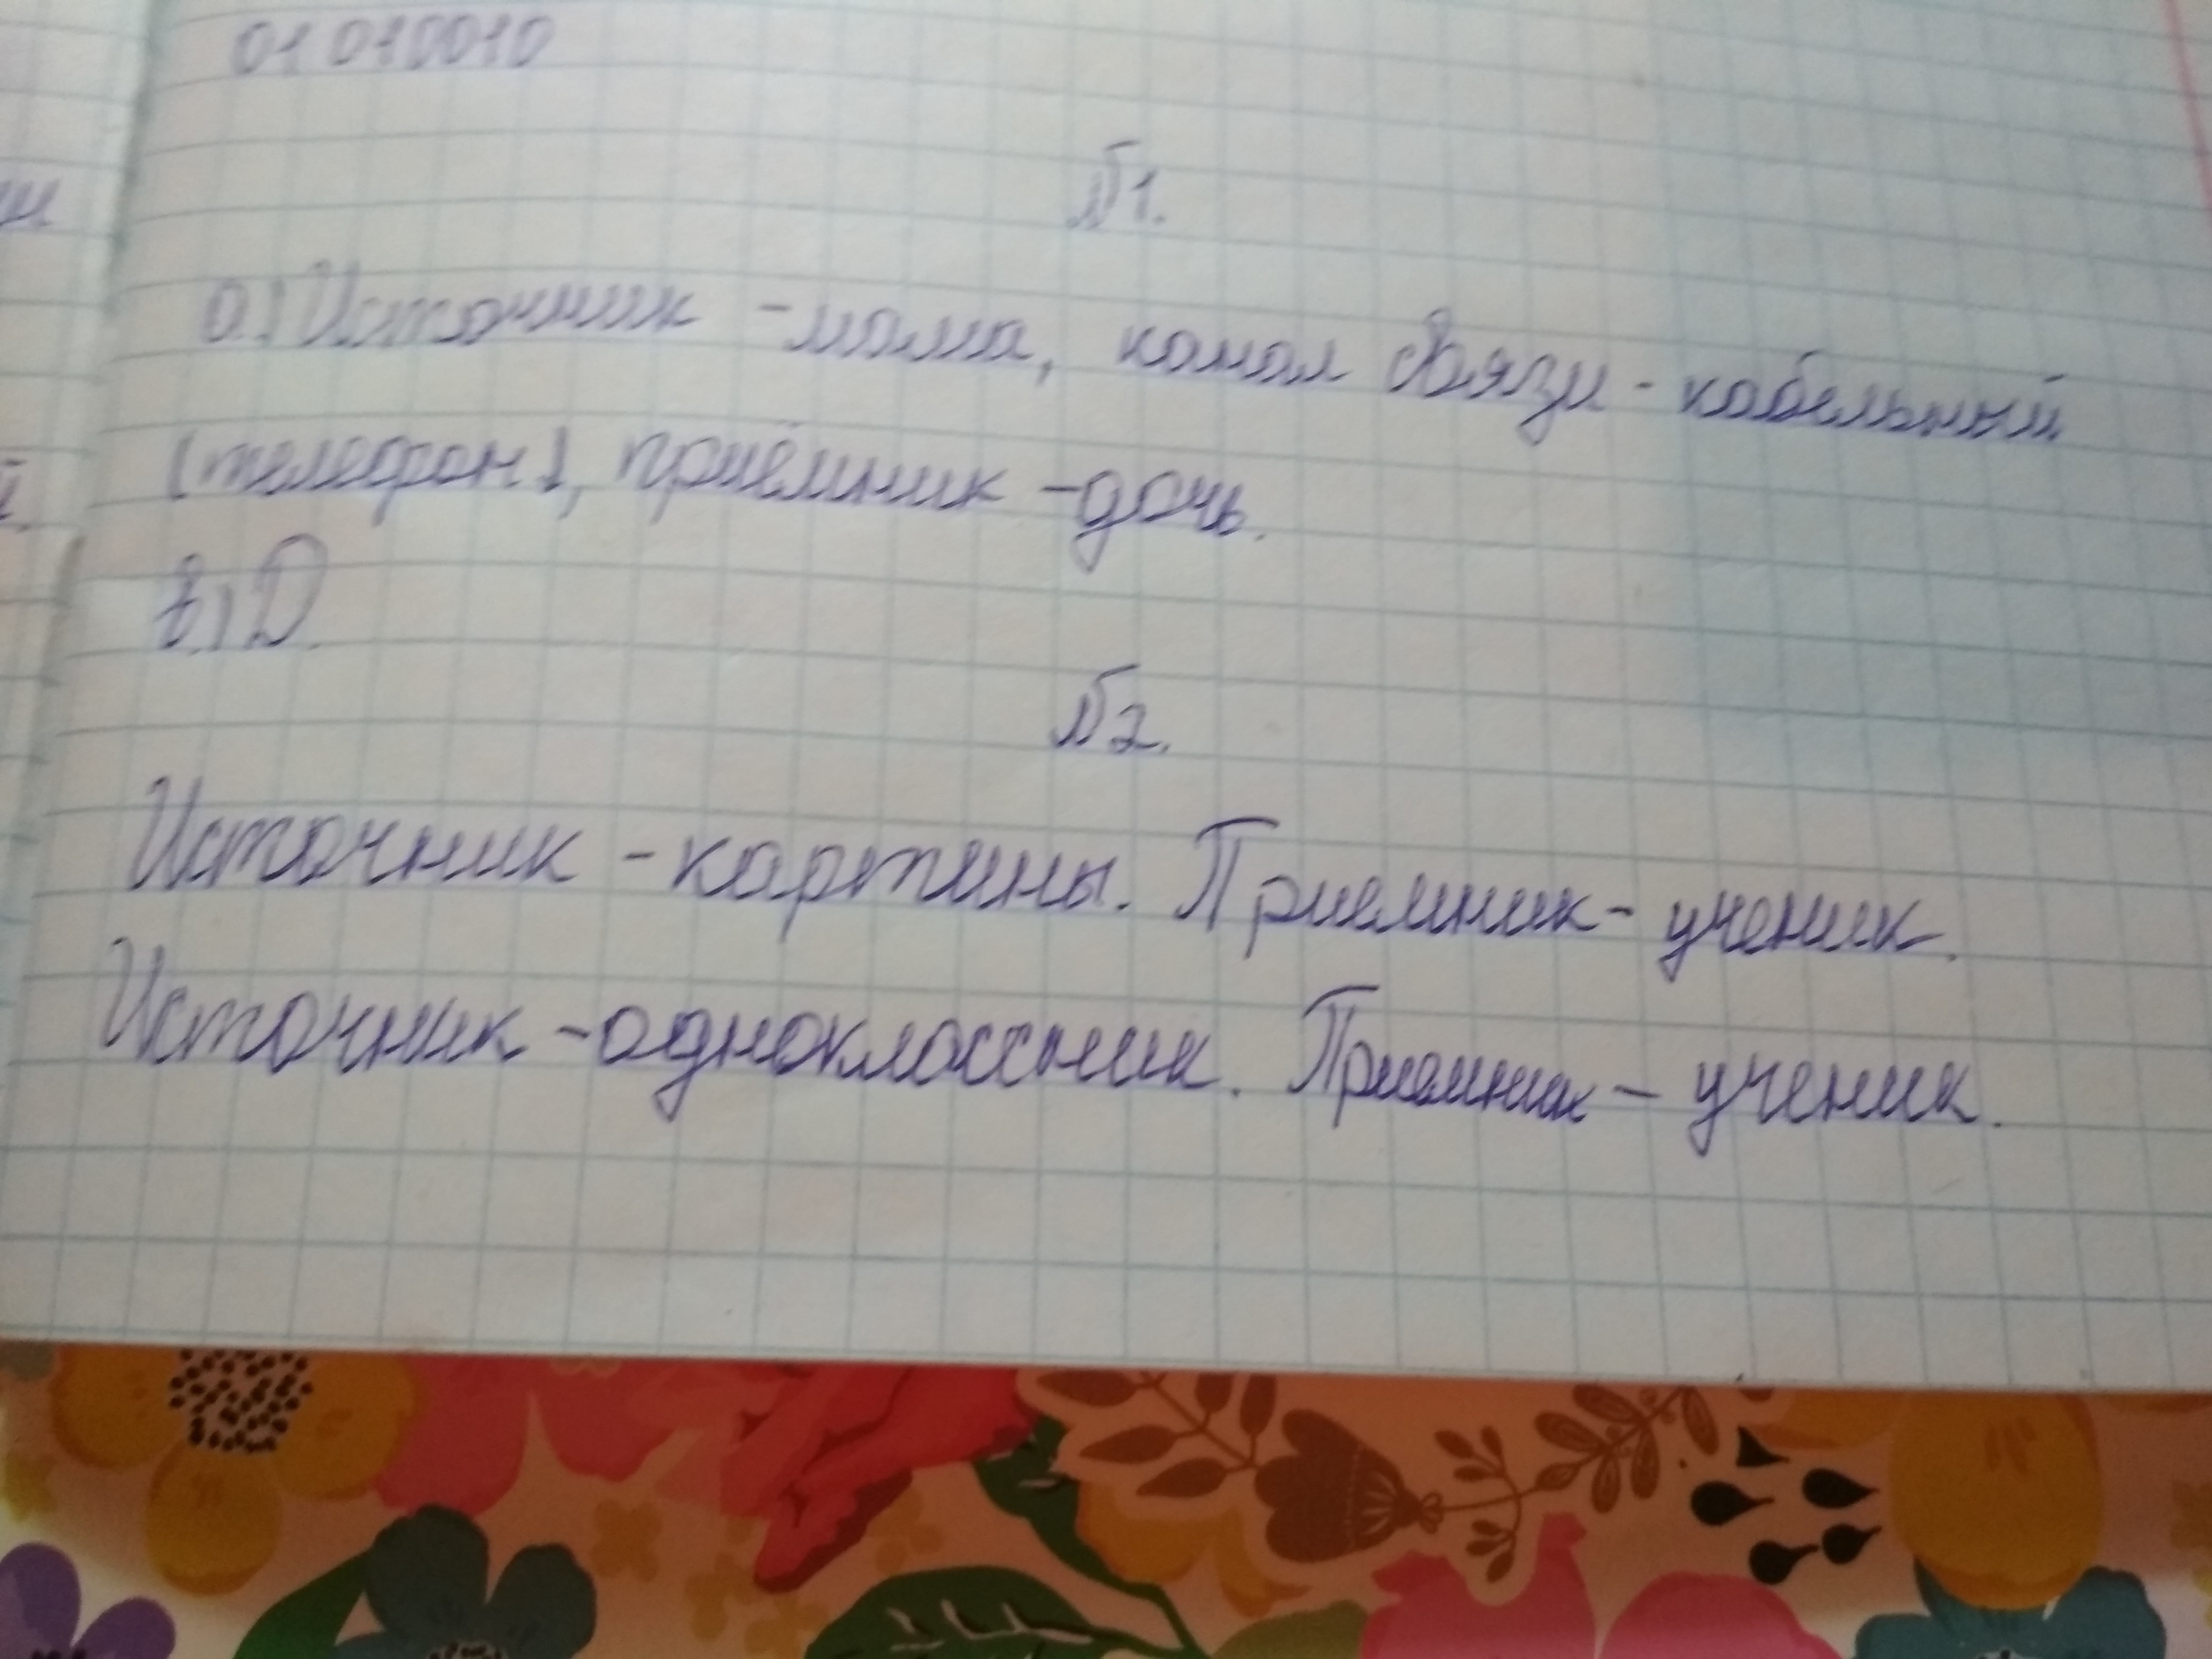 01010010
№1.
а) Источник - мама, канал связи - кабельный
(телефон), приёмник - дочь.
в) D
№2.
Источник - картины. Приемник - ученик.
Источник - одноклассник. Приемник - ученик.